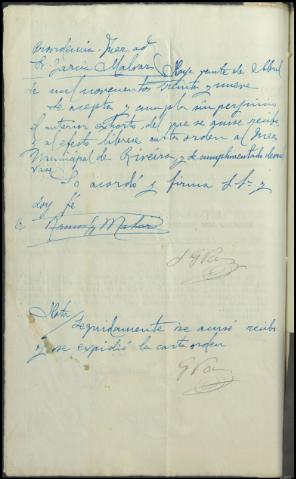 Providencia. Juez ad
Sr Garcia Malvar. Noya veinte de Abril
de mil novecientos treinta y nueve
Se acepta y cumpla sin perjuicio
el anterior exhorto del que se acuse recibo
y al efecto librese carta orden al Juez
Municipal de Riveira, y de cumplimentado devuel
vase
Lo acordó y firma S. Sª. y
doy fé
E. Ramon G Malvar
Nota/
Seguidamente se acusó recibo
y se expidió la carta orden